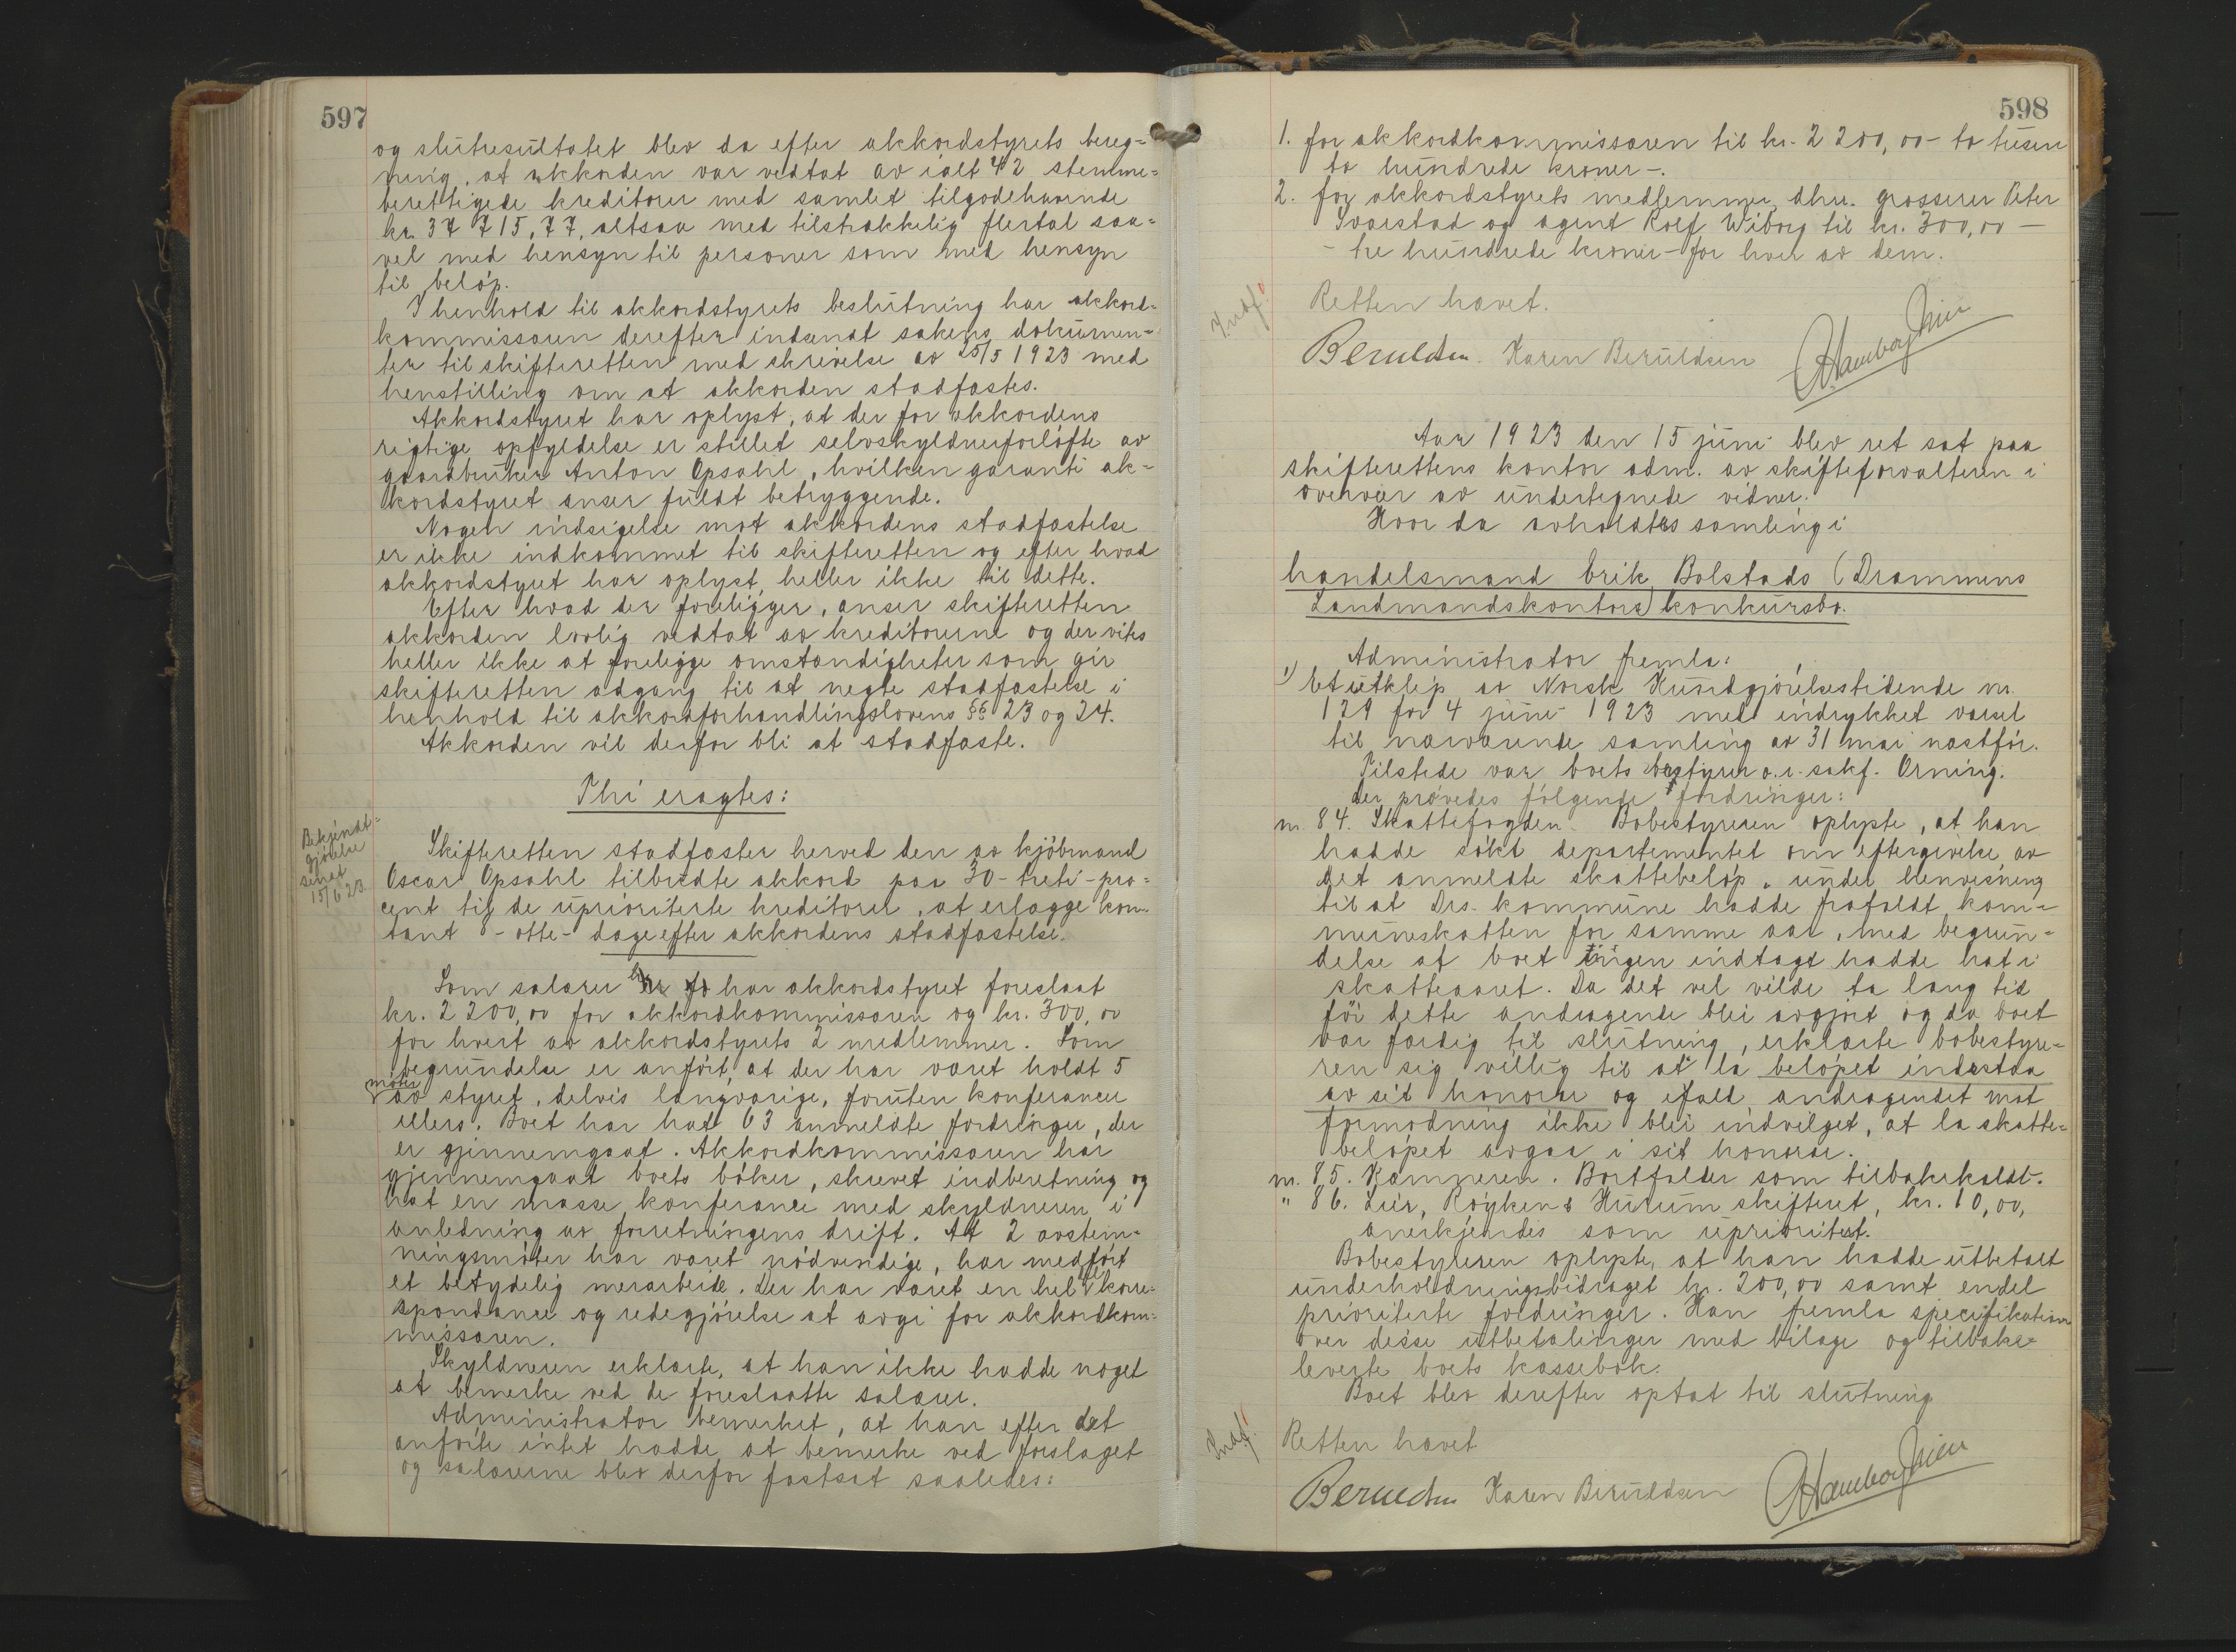 597
og slutresultatet blev da efter akkordstyrets bereg=
ning, at akkorden var vedtat av ialt 42 stemme=
berettigede kreditorer med samlet tilgodehavende
kr. 37 715,77, altsaa med tilstrækkelig flertal saa=
vel med hensyn til personer som med hensyn
til beløp.
I henhold til akkordstyrets beslutning har akkord=
kommissæren derefter indsendt sakens dokumen=
ter til skifteretten med skrivelse av 25/5 1923 med
henstilling om at akkorden stadfæstes.
Akkordstyret har oplyst, at der for akkordens
rigtige opfyldelse er stillet selvskyldnerforløfte av
gaardbruker Anton Opsahl, hvilken garanti ak=
kordstyret anser fuldt betryggende.
Nogen indsigelse mot akkordens stadfæstelse
er ikke indkommet til skifteretten og efter hvad
akkordstyret har oplyst, heller ikke til dette.
Efter hvad der foreligger, anser skifteretten
akkorden lovlig vedtat av kreditorerne og der vites
heller ikke at foreligge omstændigheter som gir
skifteretten adgang til at negte stadfæstelse i
henhold til akkordforhandlingslovens §§ 23 og 24.
Akkorden vil derfor bli at stadfæste.
Thi eragtes:
Bekjendt=
gjørelse
sendt
15/6 23.
Skifteretten stadfæster herved den av kjøbmand
Oscar Opsahl tilbudte akkord paa 30 - treti - pro=
cent til de uprioriterte kreditorer, at erlægge kon=
tant 8 - otte - dage efter akkordens stadfæstelse.
Som salærer har akkordstyret foreslaat
kr. 2 200,00 for akkordkommissæren og kr. 300,00
for hvert av akkordstyrets 2 medlemmer. Som
begrundelse er anført, at der har været holdt 5
møter
av styret, delvis langvarige, foruten konferancer
ellers. Boet har hat 63 anmeldte fordringer, der
er gjennemgaat. Akkordkommissæren har
gjennemgaat boets bøker, skrevet indberetning og
hat en masse konferance med skyldneren i
anledning av forretningens drift. At 2 avstem=
ningsmøter har været nødvendige, har medført
et betydelig merarbeide. Der har været en hel del kore=
spondance og redegjørelse at avgi for akkordkom=
missæren.
Skyldneren erklærte, at han ikke hadde noget
at bemerke ved de foreslaatte salærer.
Administrator bemerket, at han efter det
anførte intet hadde at bemerke ved forslaget
og salærerne blev derfor fastsat saaledes:
598
1. for akkordkommissæren til kr. 2 200,00 - to tusen
to hundrede kroner -.
2. for akkordstyrets medlemmer, dhrr. grosserer Peter
Svarstad og agent Rolf Wiborg til kr. 300,00 -
- tre hundrede kroner - for hver av dem.
Indf!
Retten hævet.
Beruldsen. Karen Beruldsen
Aar 1923 den 15 juni blev ret sat paa
skifterettens kontor adm. av skifteforvalteren i
overvær av undertegnede vidner.
Hvor da avholdtes samling i
handelsmand Erik Bolstads (Drammens
Landmandskontors) konkursbo.
Administrator fremla:
1) Et utklip av Norsk Kundgjørelsestidende nr.
129 for 4 juni 1923 med indrykket varsel
til nærværende samling av 31 mai næstfør.
Tilstede var boets bestyrer o.r.sakf. Orning.
Der prøvedes følgende fordringer:
nr. 84. Skattefogden. Bobestyreren oplyste, at han
hadde søkt departementet om eftergivelse av
det anmeldte skattebeløp, under henvisning
til at Drs. kommune hadde frafaldt kom=
muneskatten for samme aar, med begrun=
delse at boet ingen indtægt hadde hat i
skatteaaret. Da det vel vilde ta lang tid
før dette andragende blei avgjort og da boet
var færdig til slutning, erklærte bobestyre=
ren sig villig til at la beløpet indestaa
av sit honorar og ifald andragendet mot
formodning ikke blei indvilget, at la skatte=
beløpet avgaa i sit honorar.
nr. 85. Kæmneren. Bortfalder som tilbakekaldt.
" 86. Lier, Røyken & Hurum skifteret, kr. 10,00,
anerkjendes som uprioritert.
Bobestyreren oplyste, at han hadde utbetalt
underholdningsbidraget kr. 200,00 samt endel
prioriterte fordringer. Han fremla specifikation
over disse utbetalinger med bilage og tilbake=
leverte boets kassebok.
Boet blev derefter optat til slutning
Indf!
Retten hævet
Beruldsen Karen Beruldsen